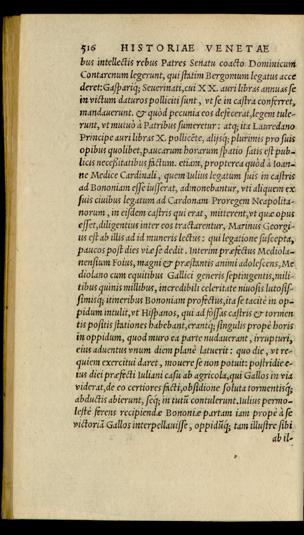 516 HISTORIAE VENETAE
bus intellectis rebus Patres Senatu coacto Dominicum
Contarenum legerunt, qui statim Bergomum legatus acce
deret: Gaspariq; Seuerinati, cui XX. auri libras annuas se
in victum daturos polliciti sunt, vt se in castra conferret,
mandauerunt. & quod pecunia eos desicerat, legem tule-
runt, vt mutuò à Patribus sumeretur: atq; ita Lauredano
Principe auri libras X. pollicēte, alijsq; plurimis pro suis
opibus quolibet, paucarum horarum spatio satis est pub-
licis necessitatibus factum. etiam, propterea quòd à Ioan-
ne Medice Cardinali, quem Iulius legatum suis in castris
ad Bononiam esse iusserat, admonebantur, vti aliquem ex
suis ciuibus legatum ad Cardonam Proregem Neapolita-
norum, in eisdem castris qui erat, mitterent, vt quæ opus
esset, diligentius inter eos tractarentur, Marinus Georgi-
us est ab illis ad id muneris lectus: qui legatione suscepta,
paucos post dies viæ se dedit. Interim præfectus Mediola-
nensium Foius, magni & præstantis animi adolescens, Me
diolano cum equitibus Gallici generis septingentis, mili-
tibus quinis millibus, incredibili celeritate niuosis lutosis-
simisq; itineribus Bononiam profectus, ita se tacitè in op-
pidum intulit, vt Hispanos, qui ad fossas castris & tormen
tis positis stationes habebant, erantq; singulis propè horis
in oppidum, quod muro ea parte nudauerant, irrupturi,
eius aduentus vnum diem planè latuerit: quo die, vt re-
quiem exercitui daret, mouere se non potuit: postridie e-
ius diei præfecti Iuliani casu ab agricola, qui Gallos in via
viderat, de eo certiores facti, obsidione soluta tormentisq;
abductis abierunt, seq; in tutū contulerunt. Iulius permo-
lestè ferens recipiendæ Bononiæ partam iam propè à se
victoriā Gallos interpellauisse, oppidūq; tam illustre sibi
ab il-